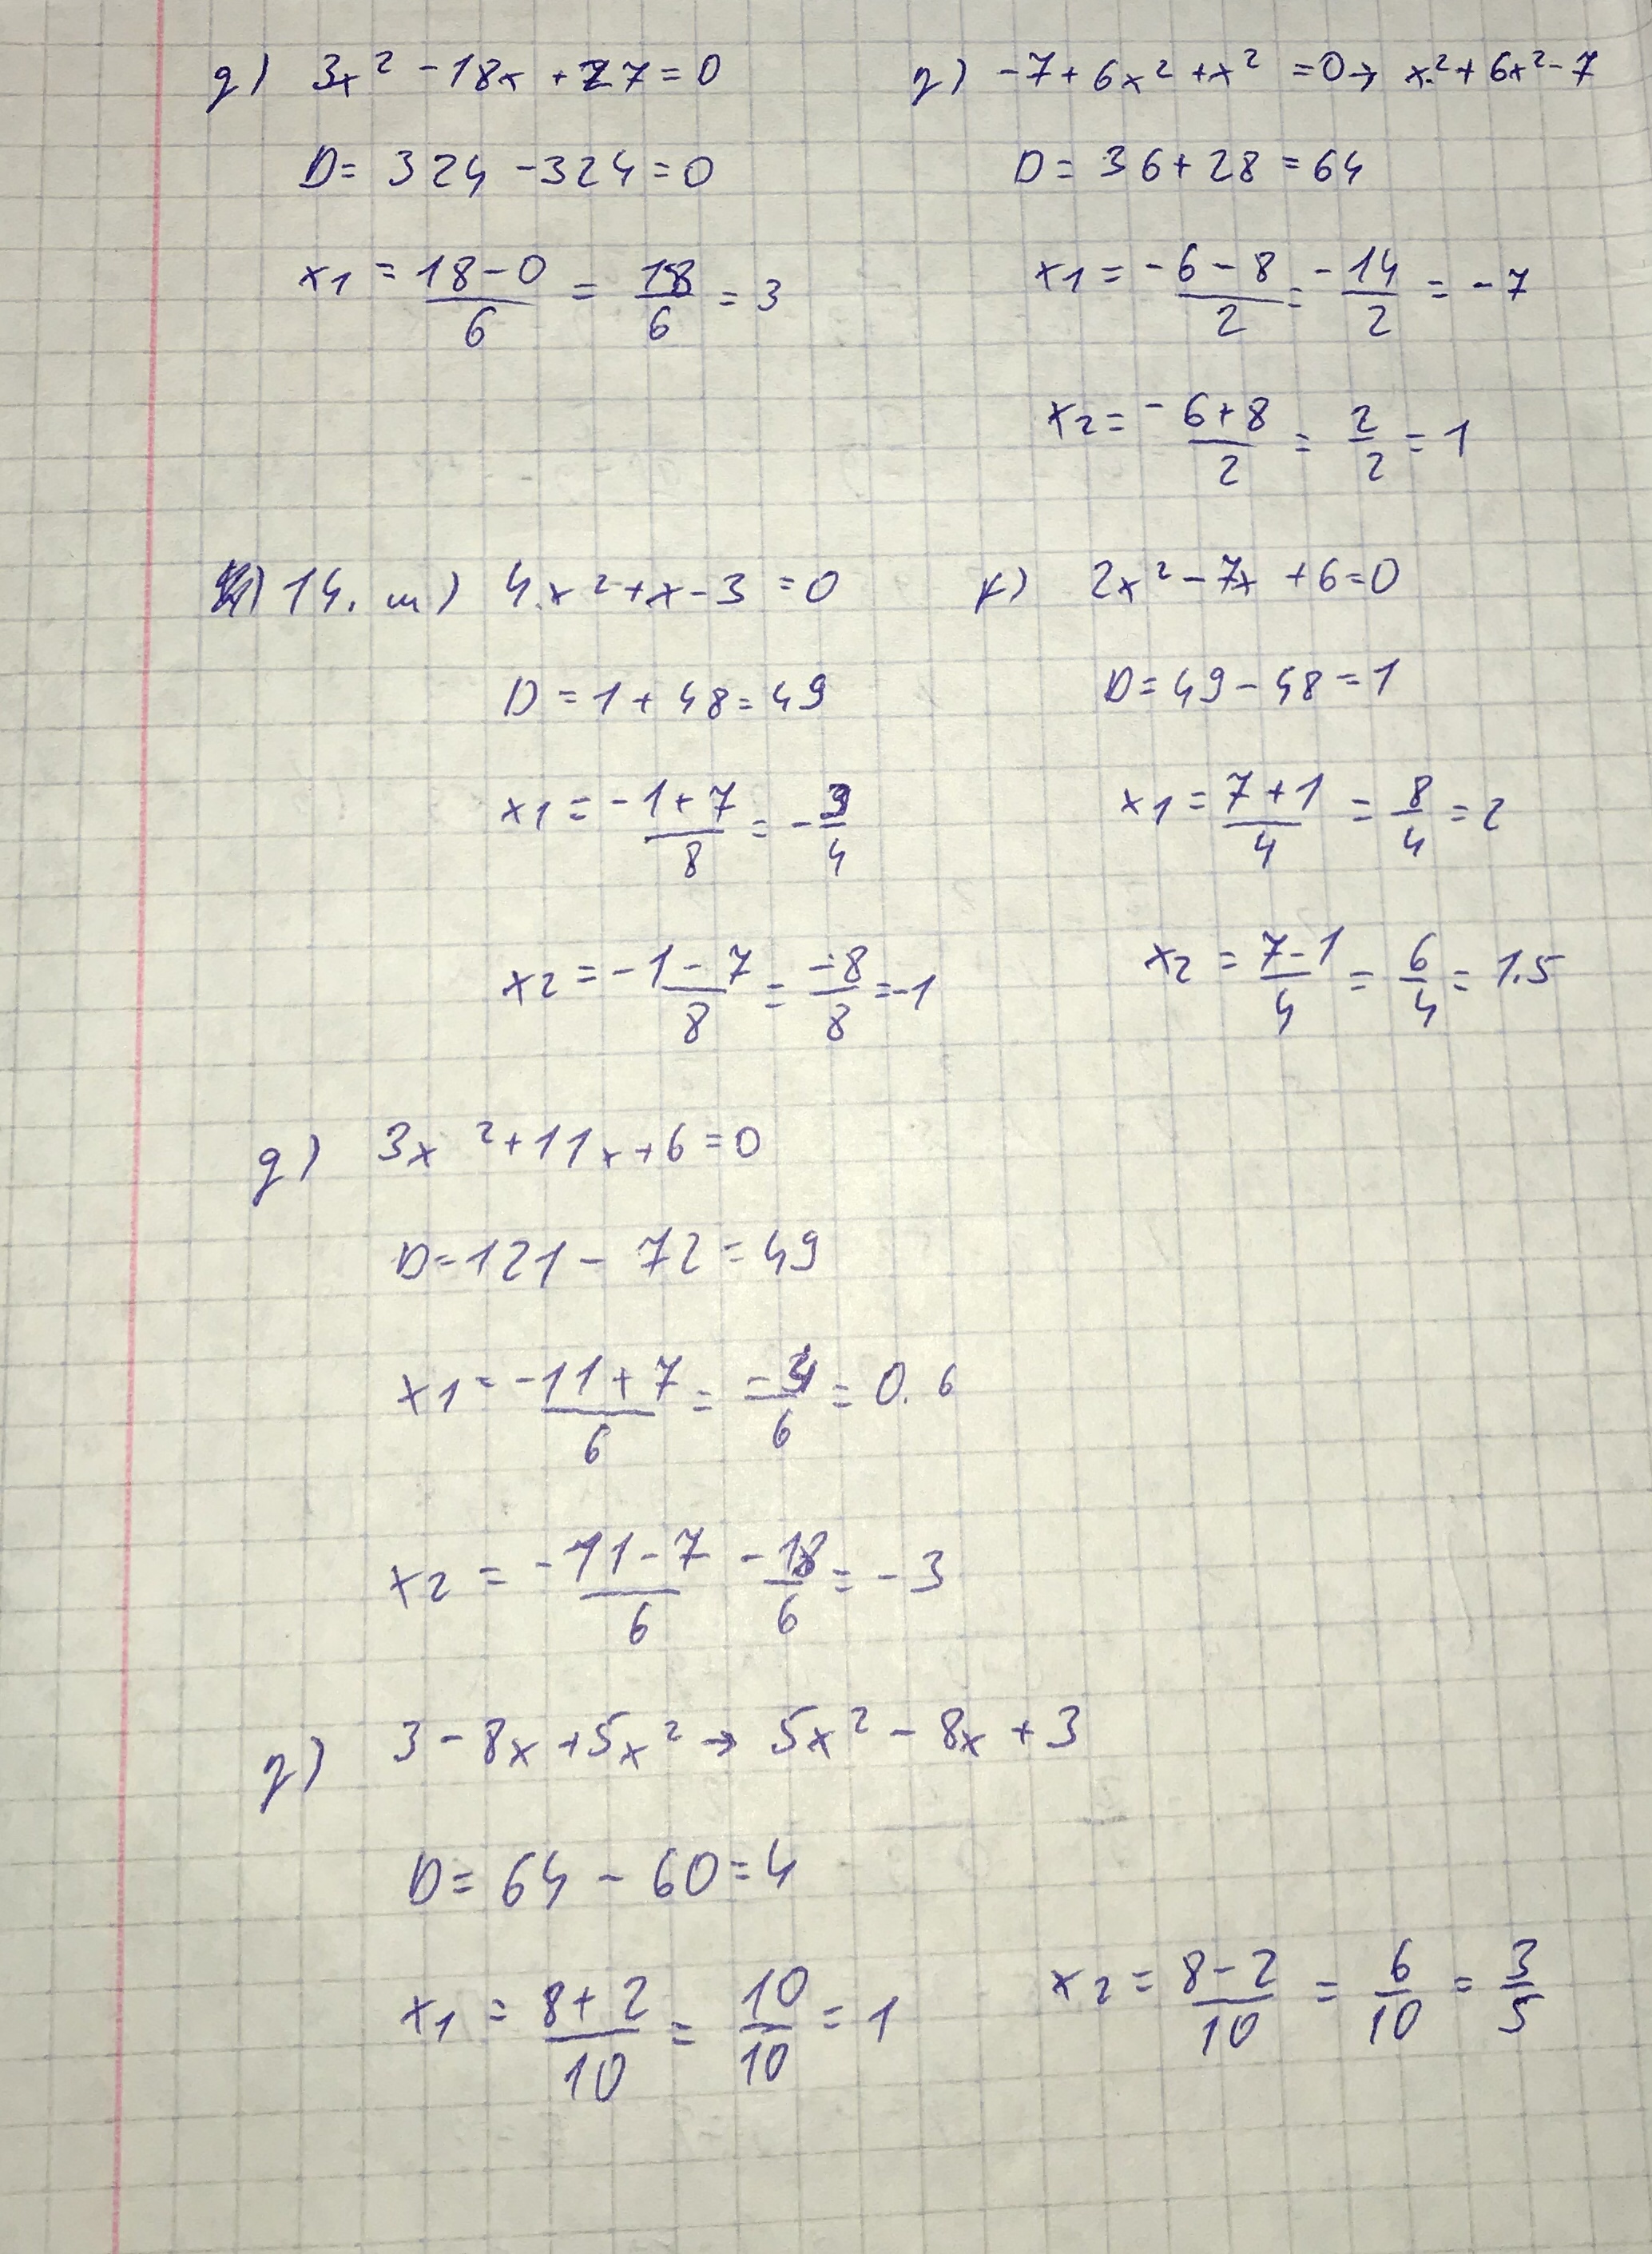 g) 3x² - 18x + 27 = 0
D = 324 - 324 = 0
x1 = 18-0/6 = 18/6 = 3
g) -7 + 6x² + x² = 0 → x² + 6x² - 7
D = 36 + 28 = 64
x1 = -6-8/2 = -14/2 = -7
x2 = -6+8/2 = 2/2 = 1
14. m) 4x² + x - 3 = 0
D = 1 + 48 = 49
x1 = -1+7/8 = -3/4
x2 = -1-7/8 = -8/8 = -1
k) 2x² - 7x + 6 = 0
D = 49 - 48 = 1
x1 = 7+1/4 = 8/4 = 2
x2 = 7-1/4 = 6/4 = 1.5
g) 3x² + 11x + 6 = 0
D = 121 - 72 = 49
x1 = -11+7/6 = -4/6 = 0.6
x2 = -11-7/6 -18/6 = -3
g) 3 - 8x + 5x² → 5x² - 8x + 3
D = 64 - 60 = 4
x1 = 8+2/10 = 10/10 = 1
x2 = 8-2/10 = 6/10 = 3/5